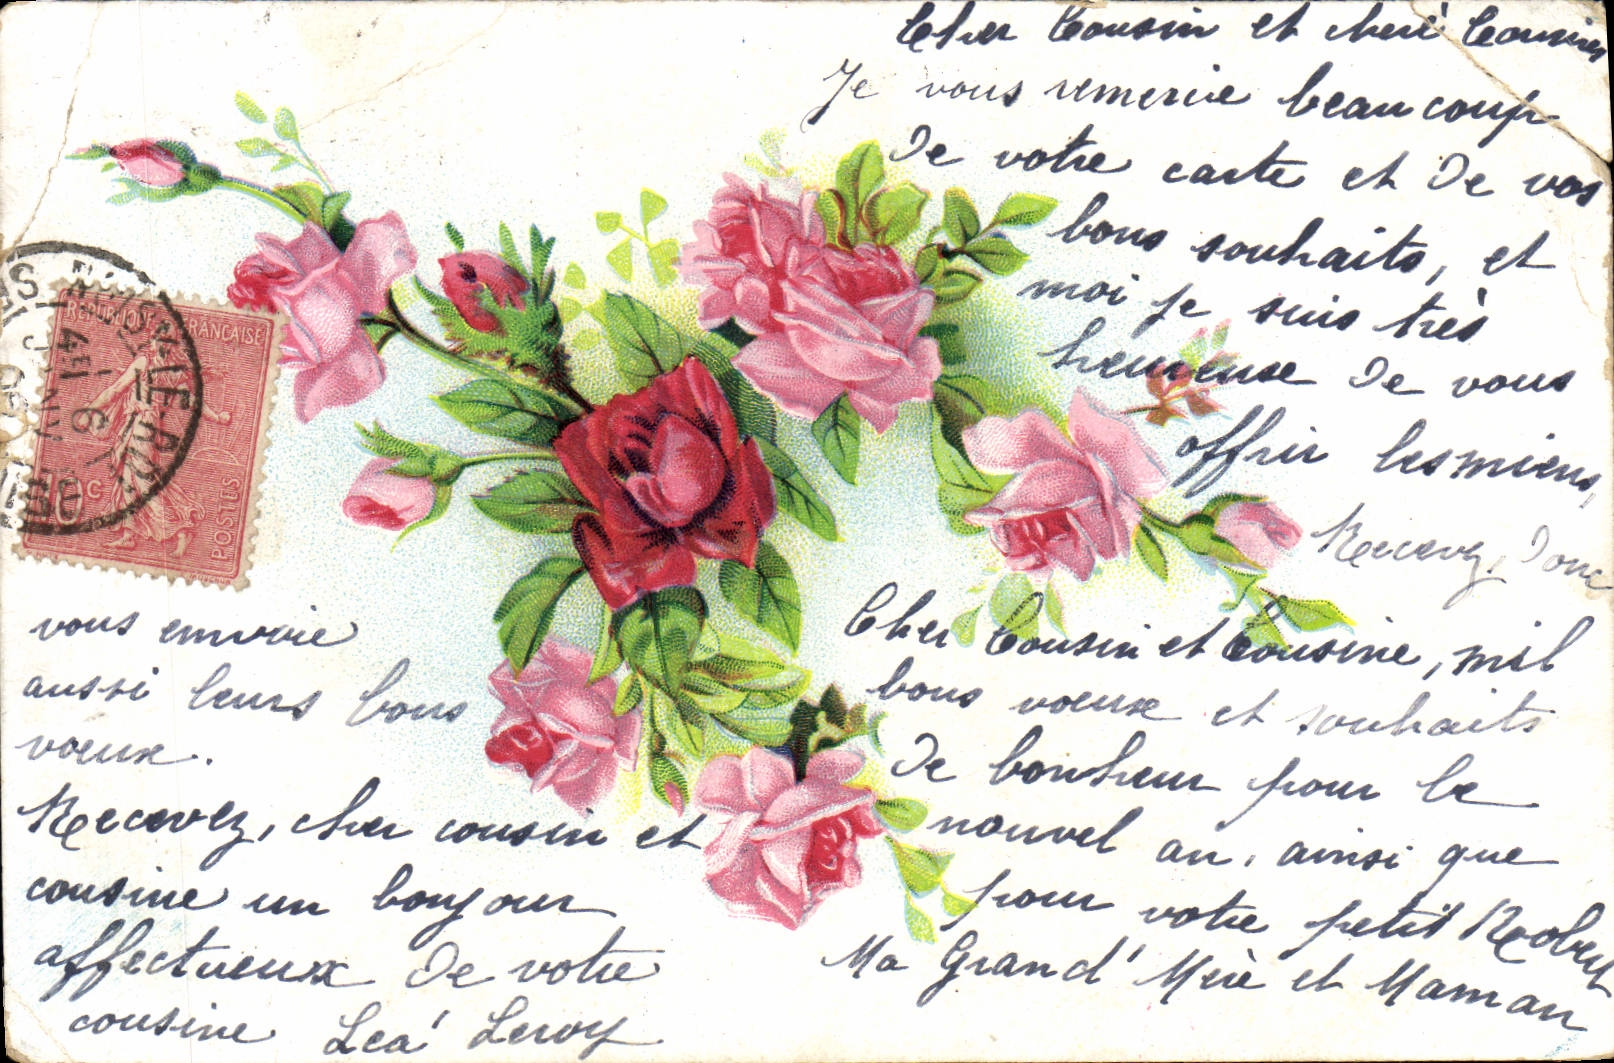 Cher Cousin et cheré Cousine
Je vous remercie beaucoup
De votre carte et De vos
bons souhaits, et
moi je suis très
heureuse De vous
offrir les miens,
Recevez, Donc
Cher Cousin et Cousine, mil
bons voeux et souhaits
De bonheur pour le
nouvel an, ainsi que
pour votre petit Robert
Ma Grand' Mère et Maman
vous envoie
aussi leurs bons
voeux.
Recevez, cher cousin et
cousine un bonjour
affectueux De votre
cousine Léa Leroy
REPUBLIQUE FRANCAISE
POSTES